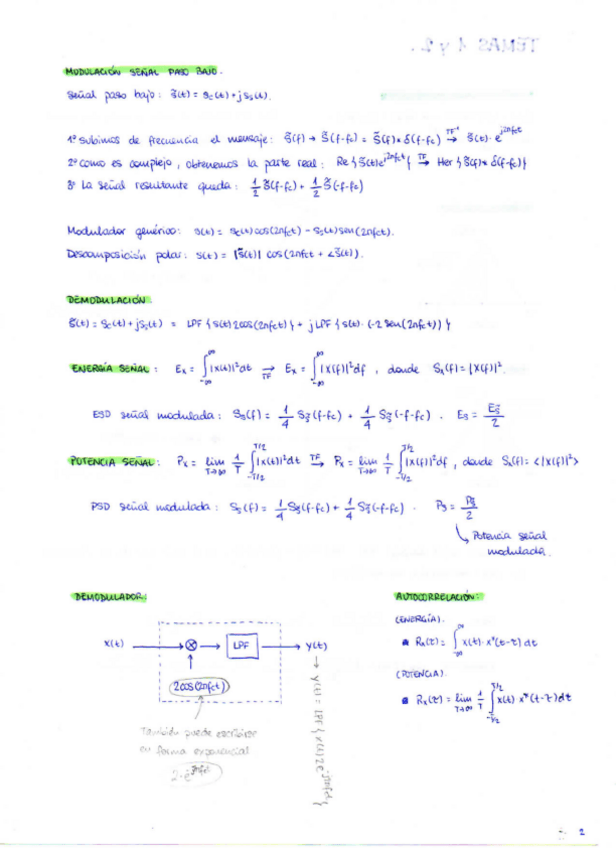 TEMAS 1 y 2.
MODULACIÓN SEÑAL PASO BAJO.
Señal paso bajo: s̃(t) = sc(t) + j ss(t).
1º Subimos de frecuencia el mensaje: S̃(f) → S̃(f-fc) = S̃(f) * δ(f-fc) TF⁻¹→ s̃(t)·e^{j2πfct}
2º Como es complejo, obtenemos la parte real: Re{s̃(t)e^{j2πfct}} TF→ Her{S̃(f) * δ(f-fc)}
3º La señal resultante queda: 1/2 S̃(f-fc) + 1/2 S̃(-f-fc)
Modulador genérico: s(t) = sc(t)cos(2πfct) - ss(t)sen(2πfct).
Descomposición polar: s(t) = |s̃(t)| cos(2πfct + ∠s̃(t)).
DEMODULACIÓN
s̃(t) = sc(t) + j ss(t) = LPF{s(t)2cos(2πfct)} + j LPF{s(t)·(-2sen(2πfct))}
ENERGÍA SEÑAL: Ex = ∫_{-∞}^{∞} |x(t)|² dt TF→ Ex = ∫_{-∞}^{∞} |X(f)|² df, donde Sx(f) = |X(f)|².
ESD señal modulada: Ss(f) = 1/4 Ss̃(f-fc) + 1/4 Ss̃(-f-fc). Es = Es̃/2
POTENCIA SEÑAL: Px = lim_{T→∞} 1/T ∫_{-T/2}^{T/2} |x(t)|² dt TF→ Px = lim_{T→∞} 1/T ∫_{-T/2}^{T/2} |X(f)|² df, donde Sx(f) = <|X(f)|²>
PSD señal modulada: Ss(f) = 1/4 Ss̃(f-fc) + 1/4 Ss̃(-f-fc). Ps = Ps̃/2
Potencia señal
modulada.
DEMODULADOR:
x(t) → ⊗ → LPF → y(t)
2cos(2πfct)
También puede escribirse
en forma exponencial
2·e^{-j2πfct}
→ y(t) = LPF{x(t)2e^{-j2πfct}}
AUTOCORRELACIÓN:
(ENERGÍA).
Rx(τ) = ∫_{-∞}^{∞} x(t)·x*(t-τ) dt
(POTENCIA)
Rx(τ) = lim_{T→∞} 1/T ∫_{-T/2}^{T/2} x(t) x*(t-τ) dt
2